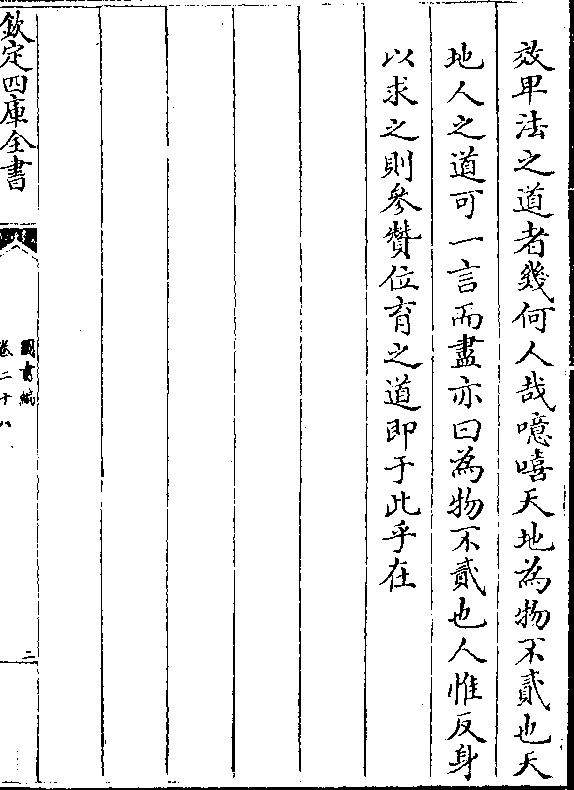 效卑法之道者幾何人哉噫嘻天地為物不貳也天
地人之道可一言而盡亦曰為物不貳也人惟反身
以求之則參贊位育之道即于此乎在
欽定四庫全書
圖書編
卷二十八
二